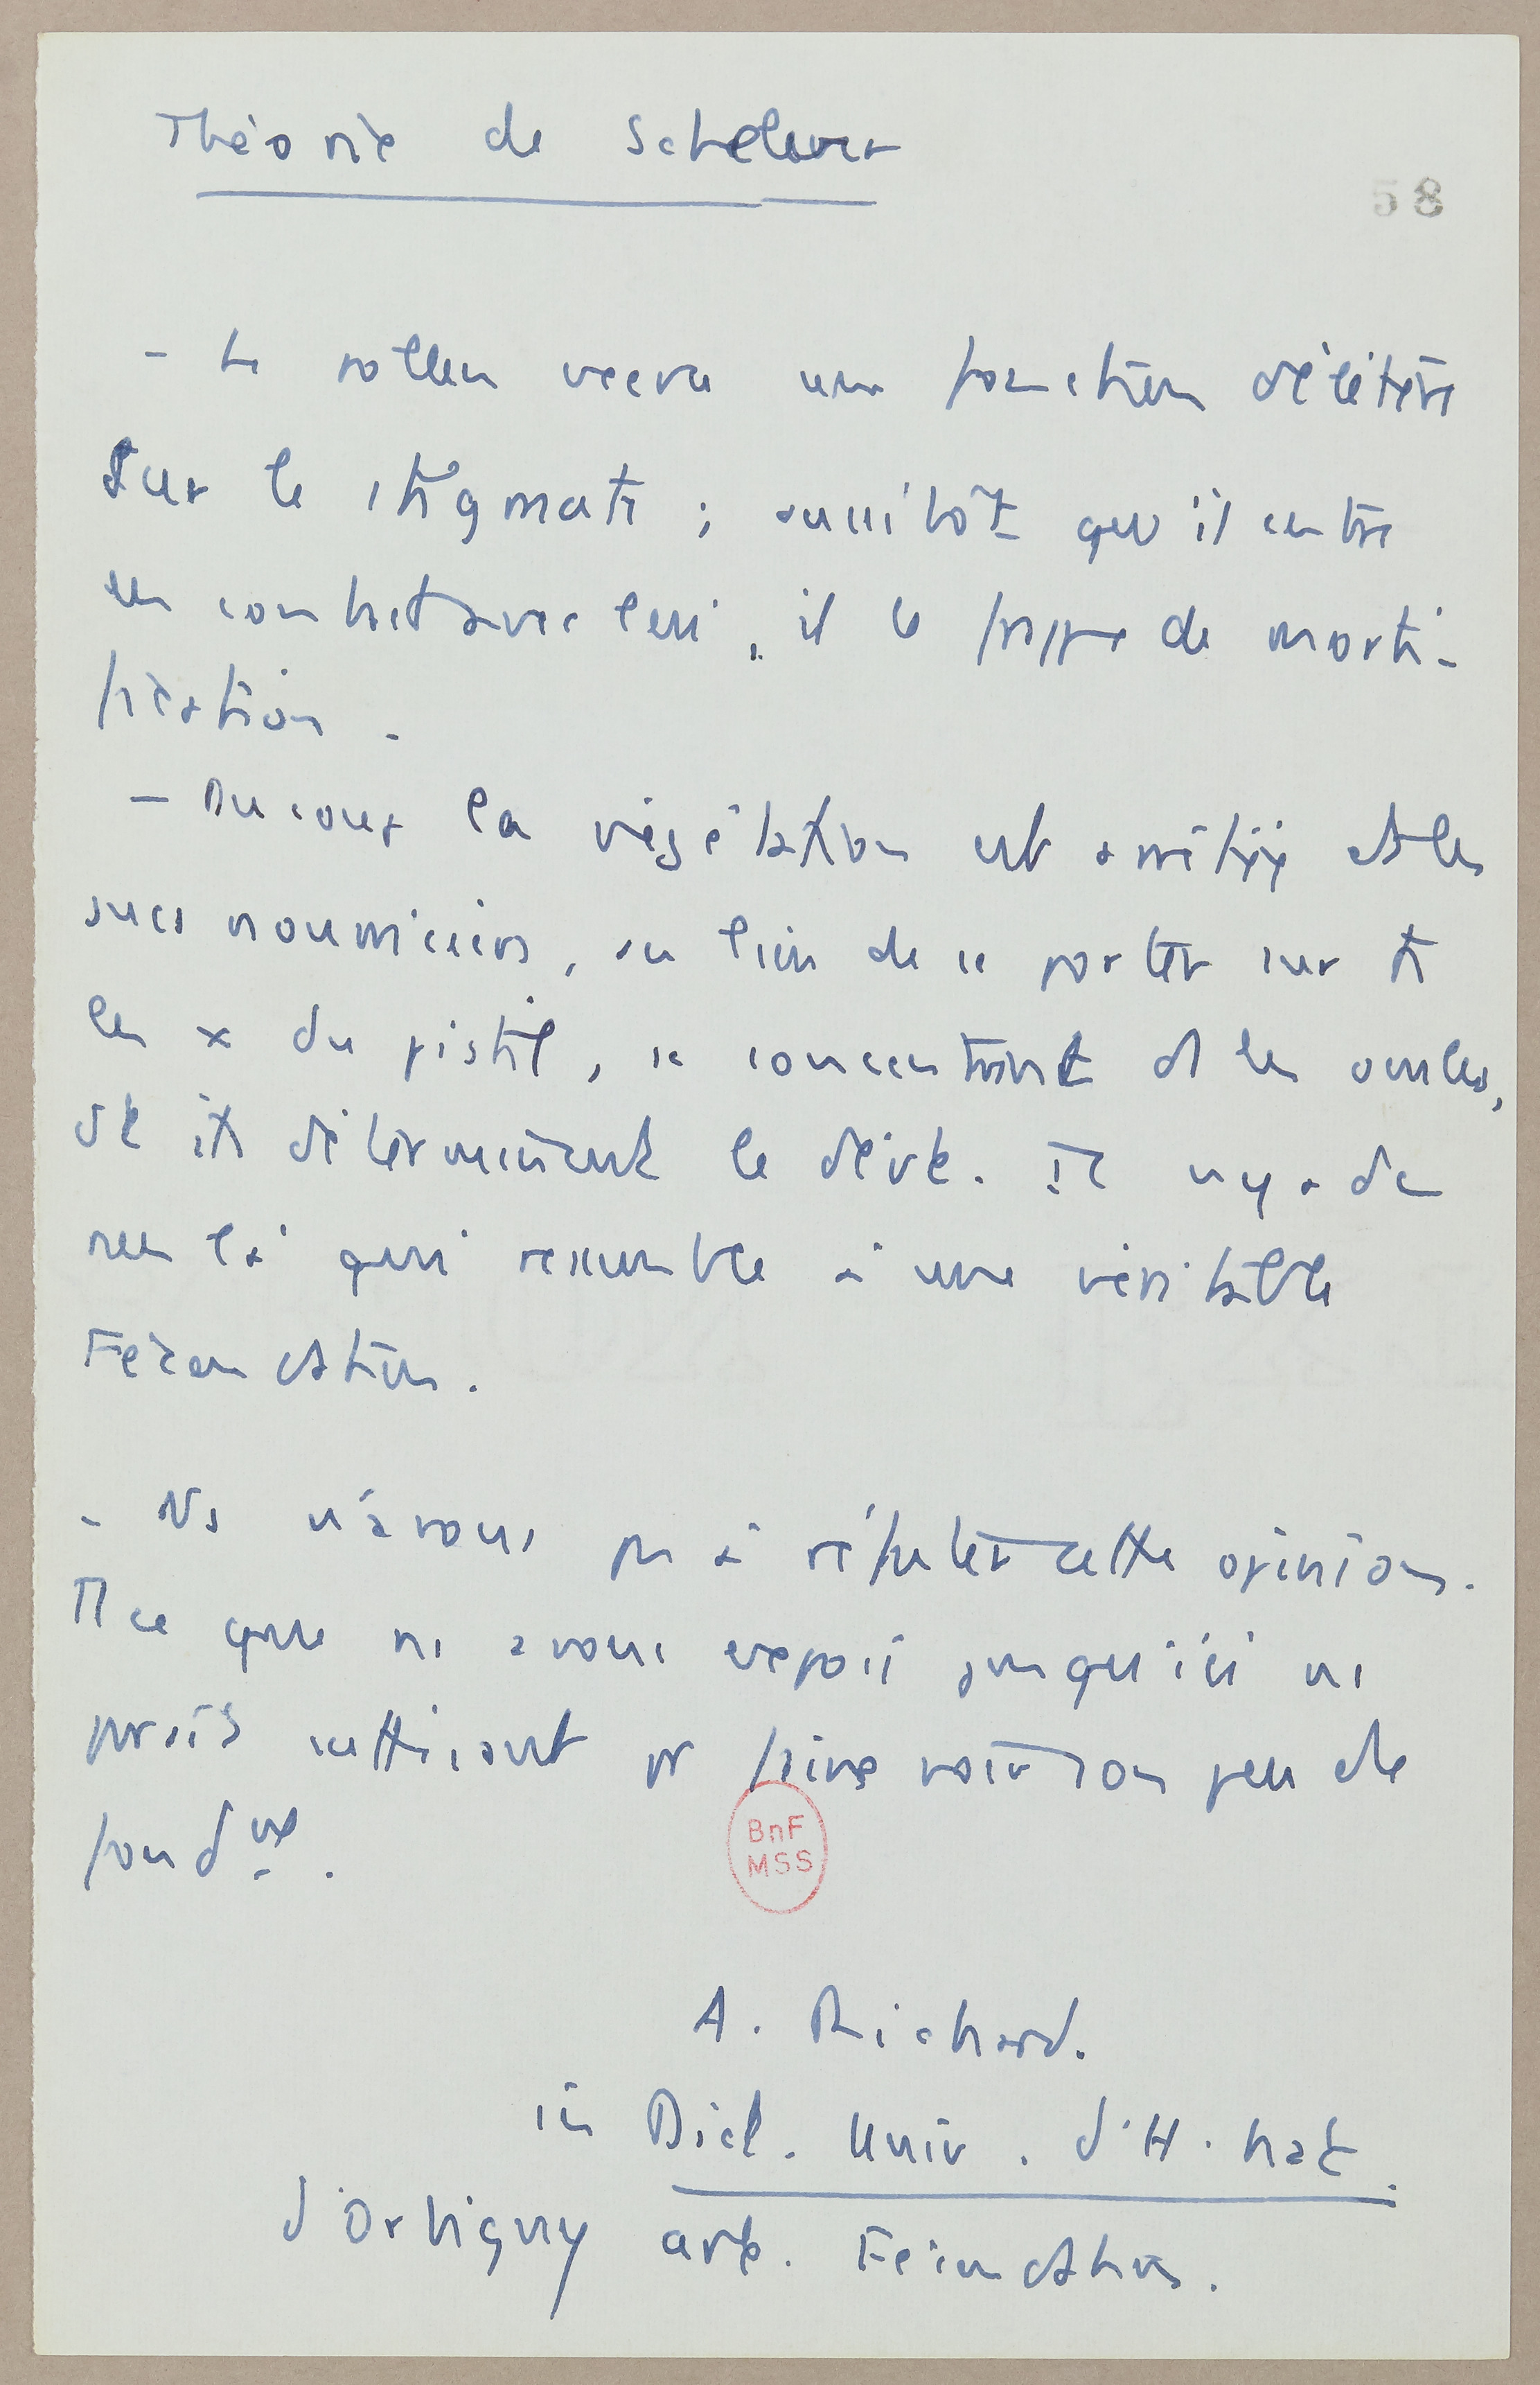 Théorie de Schelver
58
- Le pollen exerce une fonction délétère
sur le stigmate ; aussitôt qu'il entre
en contact avec lui, il le frappe de morti-
fication.
- Du coup la végétation est arrêtée et les
sucs nourriciers, au lieu de se porter sur tt
les x du pistil, se concentrent ds les ovules,
dt ils déterminent le dévt. Il n'y a de
rien là qui ressemble à une véritable
Fécondation.
- Ns n'avons pas à réfuter cette opinion.
Tt ce que ns avons exposé jusqu'ici ns
paraît suffisant pr faire voir son peu de
fondmt.
A. Richard.
in Dict. Univ. d'H. nat.
d'Orbigny art. Fécondation.
BnF
MSS